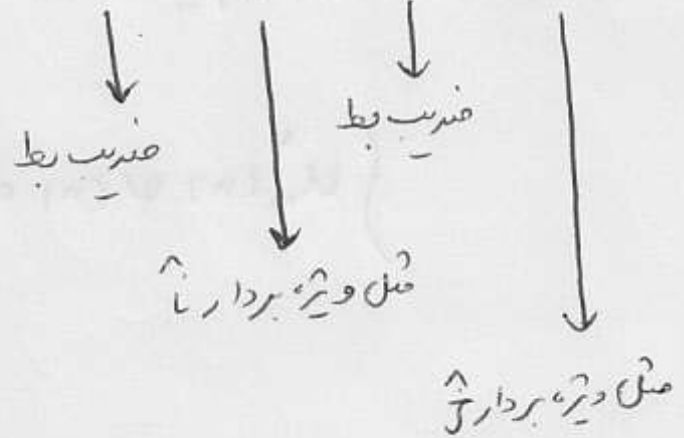 ضریب بسط
ضریب بسط
مثل ویژه بردار î
مثل ویژه بردار ĵ